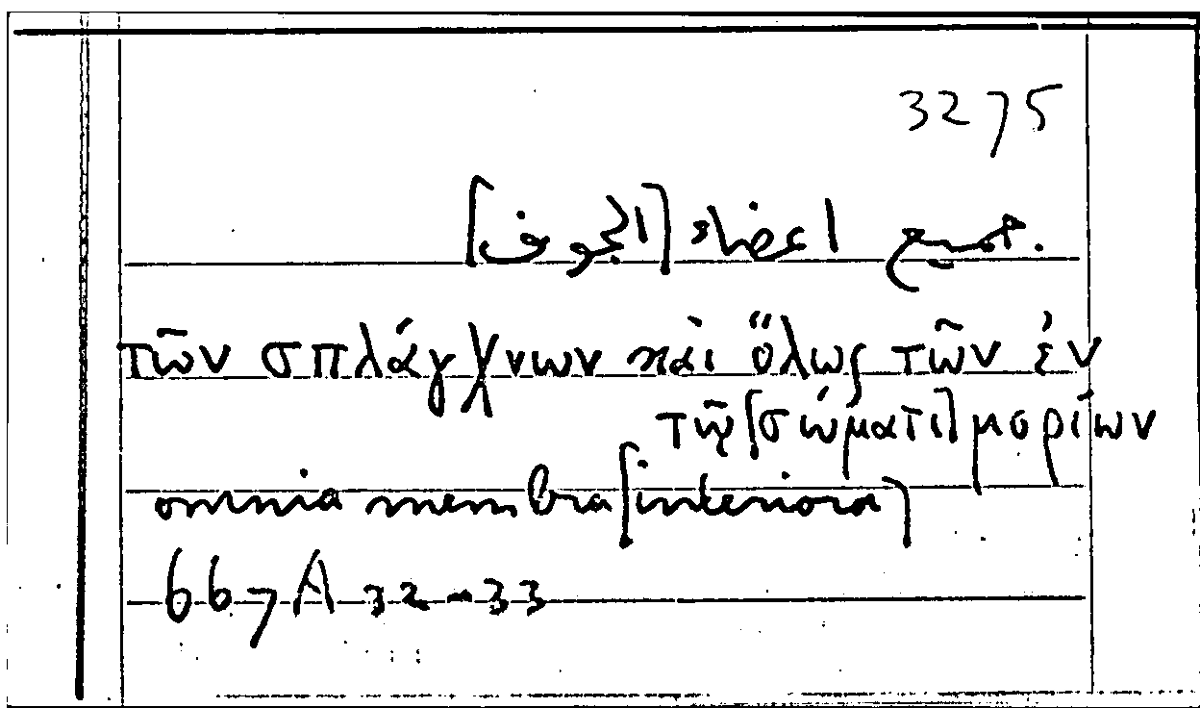 3275
جميع اعضاء [الجوف]
τῶν σπλάγχνων καὶ ὅλως τῶν ἐν
τῷ [σώματι] μορίων
omnia membra [interiora]
667A 32-33